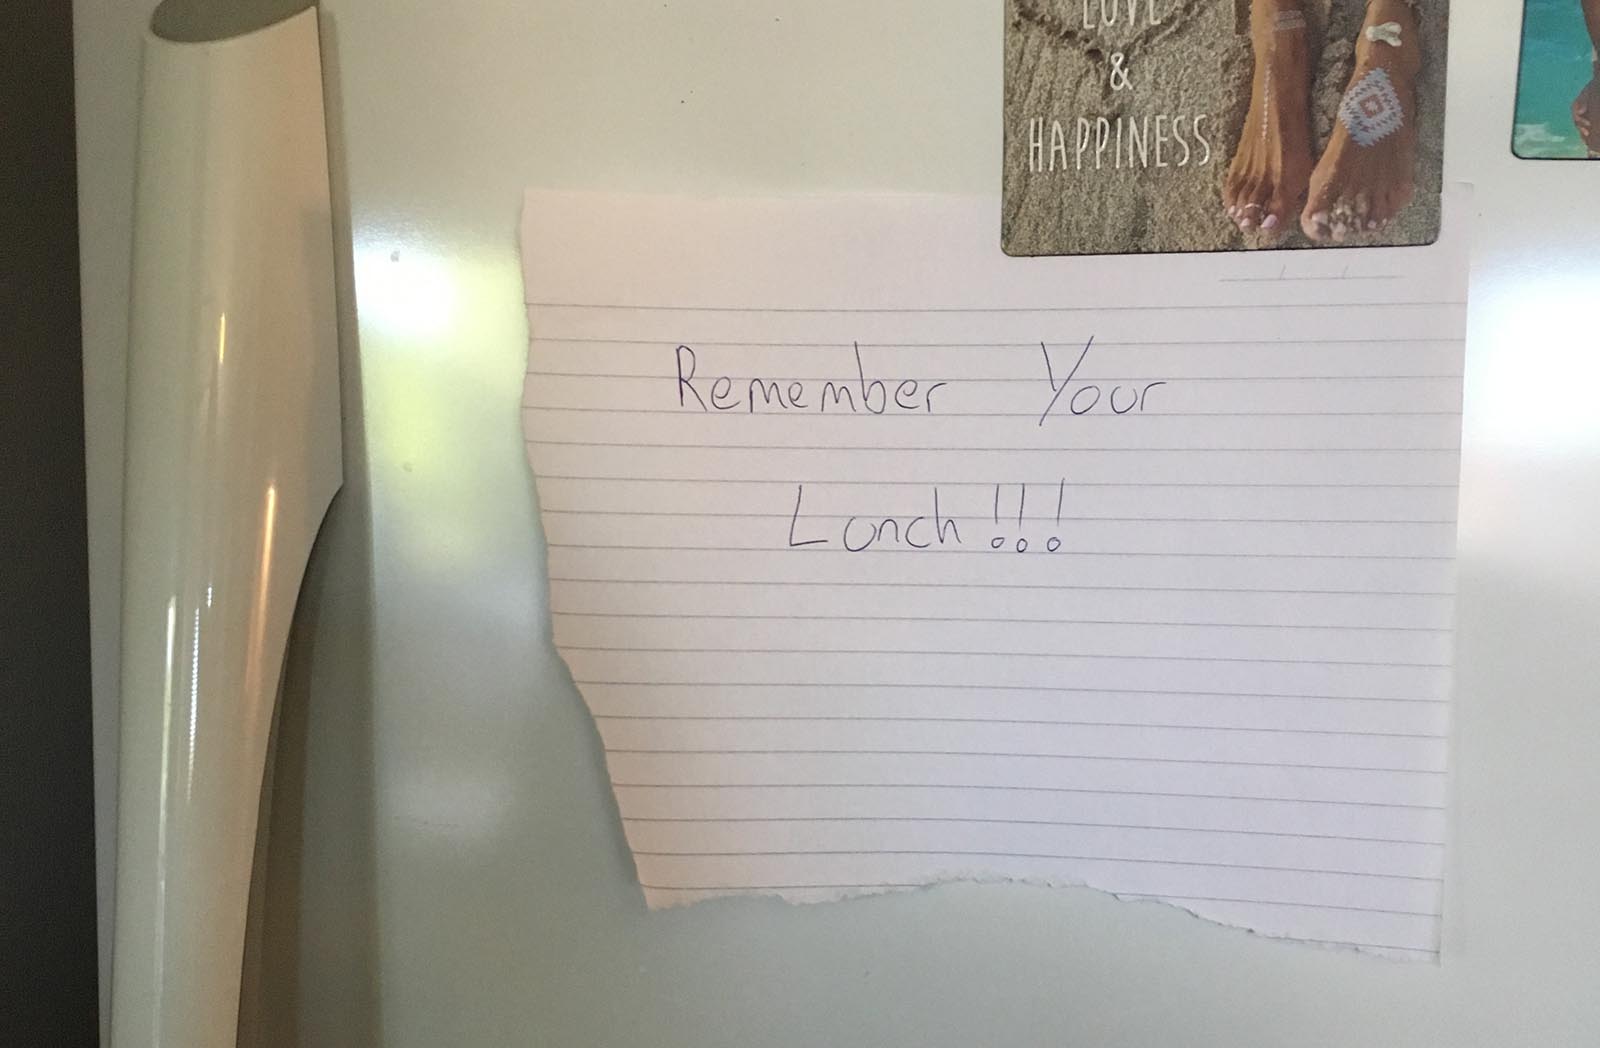 LOVE
&
HAPPINESS
Remember Your
Lunch!!!